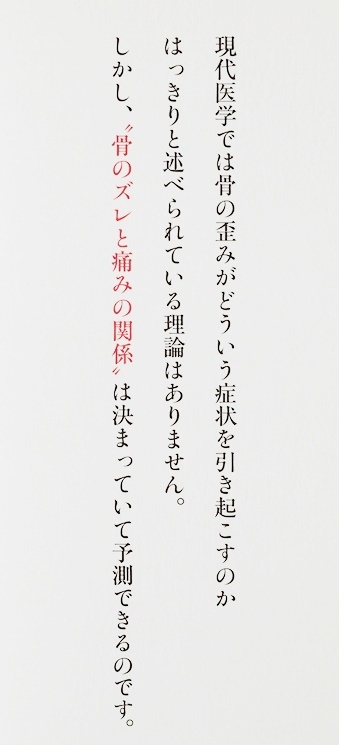 現代医学では骨の歪みがどういう症状を引き起こすのか
はっきりと述べられている理論はありません。
しかし、〝骨のズレと痛みの関係〟は決まっていて予測できるのです。